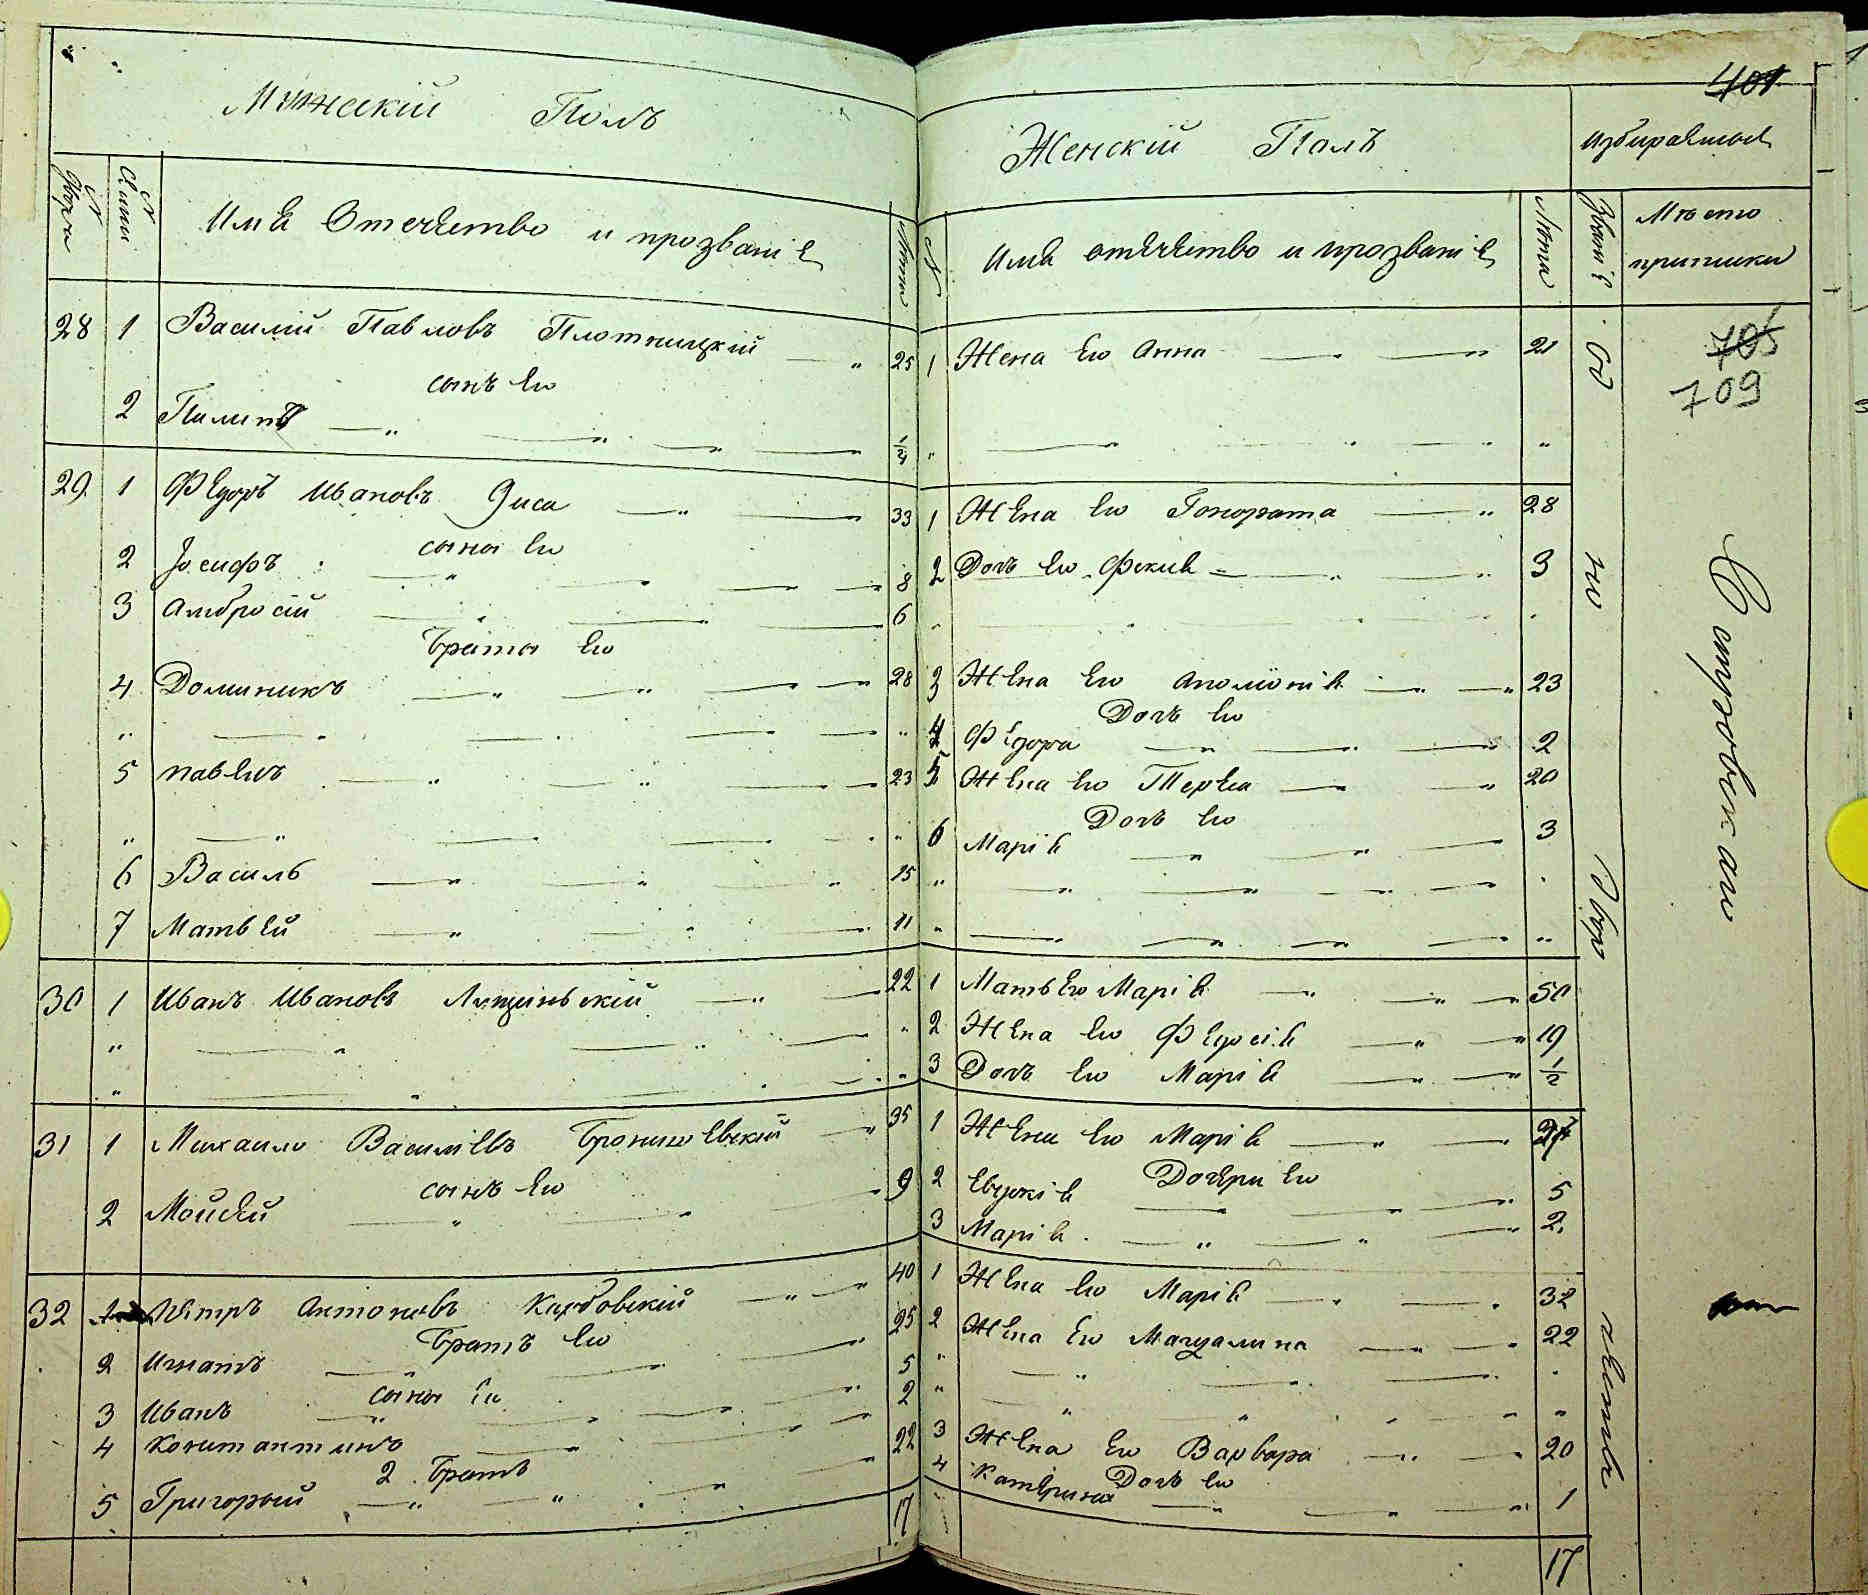 Мужескій Полъ
№ Двора
№ Души
Имя Отечество и прозваніе
Лѣта
28 1 Василій Павловъ Плотницкій 25
сынъ его
2 Пилипъ 1/4
29 1 Федоръ Ивановъ 33
сыны его
2 Іосифъ 8
3 Амбросій 6
Браты его
4 Доминикъ 28
5 Павелъ 23
6 Василь 15
7 Матвей 11
30 1 Иванъ Ивановъ 22
31 1 Михаило Василіевъ Бронишевскій 35
сынъ его
2 Мойсей 9
32 Петръ Антоновъ 40
Братъ его
2 Игнатъ 25
сыны его
3 Иванъ 5
4 Константинъ 2
2 Братъ
5 Григорый 22
17
401
Женскій Полъ
Избираемые
№
Имя отечество и прозваніе
Лѣта
Званіе
Мѣсто приписки
1 Жена его Анна 21
705
709
1 Жена его Гонората 28
2 Дочь его Фекля 3
3 Жена его Аполіонія 23
Дочь его
4 Федора 2
5 Жена его Тереса 20
Дочь его
6 Марія 3
1 Мать его Марія 50
2 Жена его Федосія 19
3 Дочь его Марія 1/2
1 Жена его Марія 27
Дочери его
2 Евдокія 5
3 Марія 2
1 Жена его Марія 32
2 Жена его Магдалина 22
3 Жена его Варвара 20
Дочь его
4 Катерина 1
17
Однодворцы